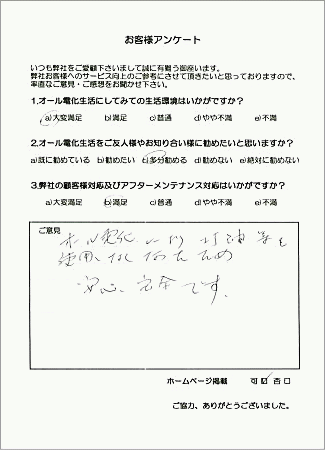 お客様アンケート
いつも弊社をご愛顧下さいまして誠に有難う御座います。
弊社お客様へのサービス向上のご参考にさせて頂きたいと思っておりますので、
率直なご意見・ご感想をお聞かせ下さい。
1.オール電化生活にしてみての生活環境はいかがですか？
a)大変満足 b)満足 c)普通 d)やや不満 e)不満
2.オール電化生活をご友人様やお知り合い様に勧めたいと思いますか？
a)既に勧めている b)勧めたい c)多分勧める d)勧めない e)絶対に勧めない
3.弊社の顧客様対応及びアフターメンテナンス対応はいかがですか？
a)大変満足 b)満足 c)普通 d)やや不満 e)不満
ご意見
オール電化 灯油 等を
使用しなく ため
安心、安全です。
ホームページ掲載 可 否
ご協力、ありがとうございました。